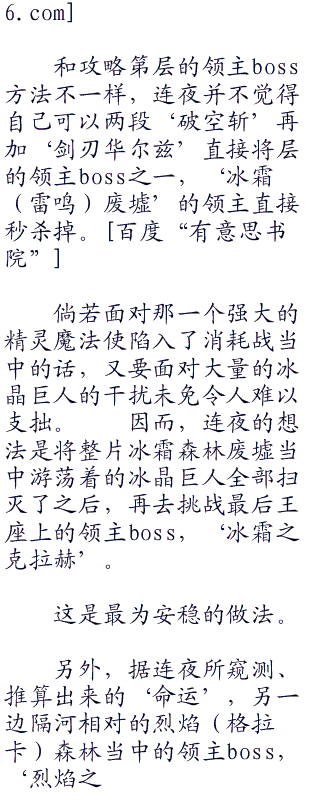 6.com]
　　和攻略第层的领主boss
方法不一样，连夜并不觉得
自己可以两段‘破空斩’再
加‘剑刃华尔兹’直接将层
的领主boss之一，‘冰霜
（雷鸣）废墟’的领主直接
秒杀掉。[百度“有意思书
院”]
　　倘若面对那一个强大的
精灵魔法使陷入了消耗战当
中的话，又要面对大量的冰
晶巨人的干扰未免令人难以
支拙。　　因而，连夜的想
法是将整片冰霜森林废墟当
中游荡着的冰晶巨人全部扫
灭了之后，再去挑战最后王
座上的领主boss，‘冰霜之
克拉赫’。
　　这是最为安稳的做法。
　　另外，据连夜所窥测、
推算出来的‘命运’，另一
边隔河相对的烈焰（格拉
卡）森林当中的领主boss，
‘烈焰之